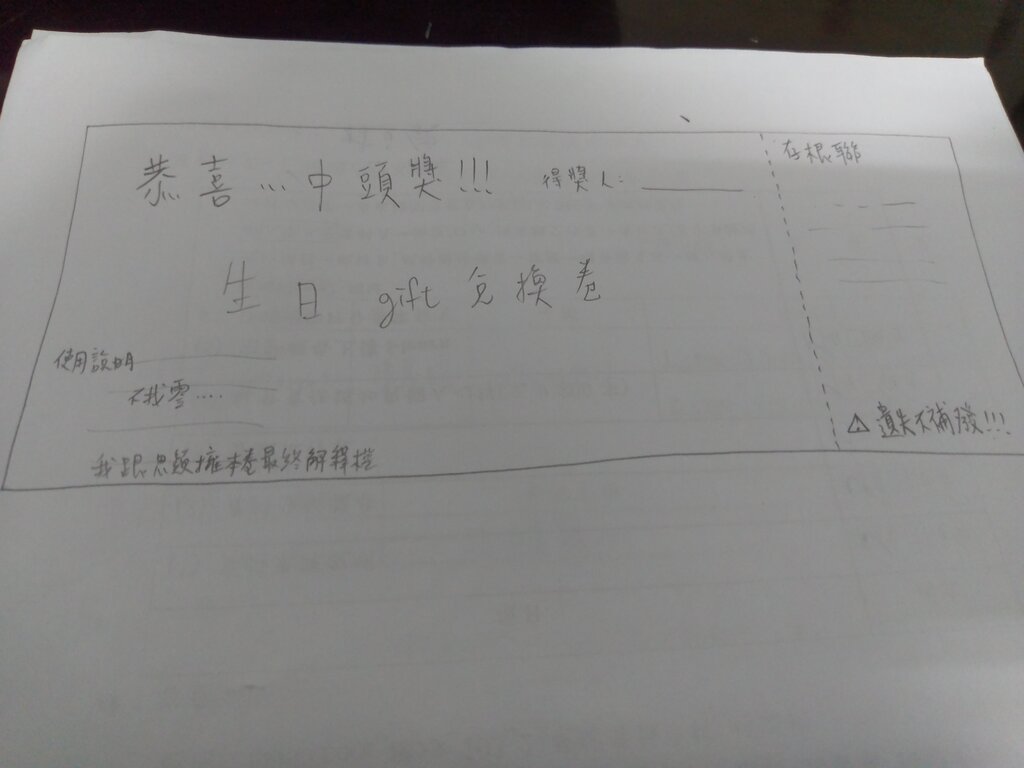 恭喜...中頭獎!!! 得獎人:
生日 gift 兌換卷
使用說明
不找零....
我跟思穎擁本卷最終解釋權
存根聯
⚠ 遺失不補發!!!